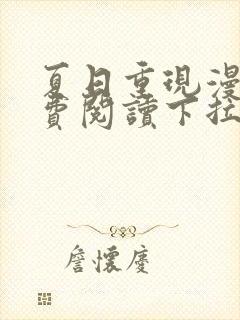 夏日重現漫
費閱讀下拉
詹懷慶